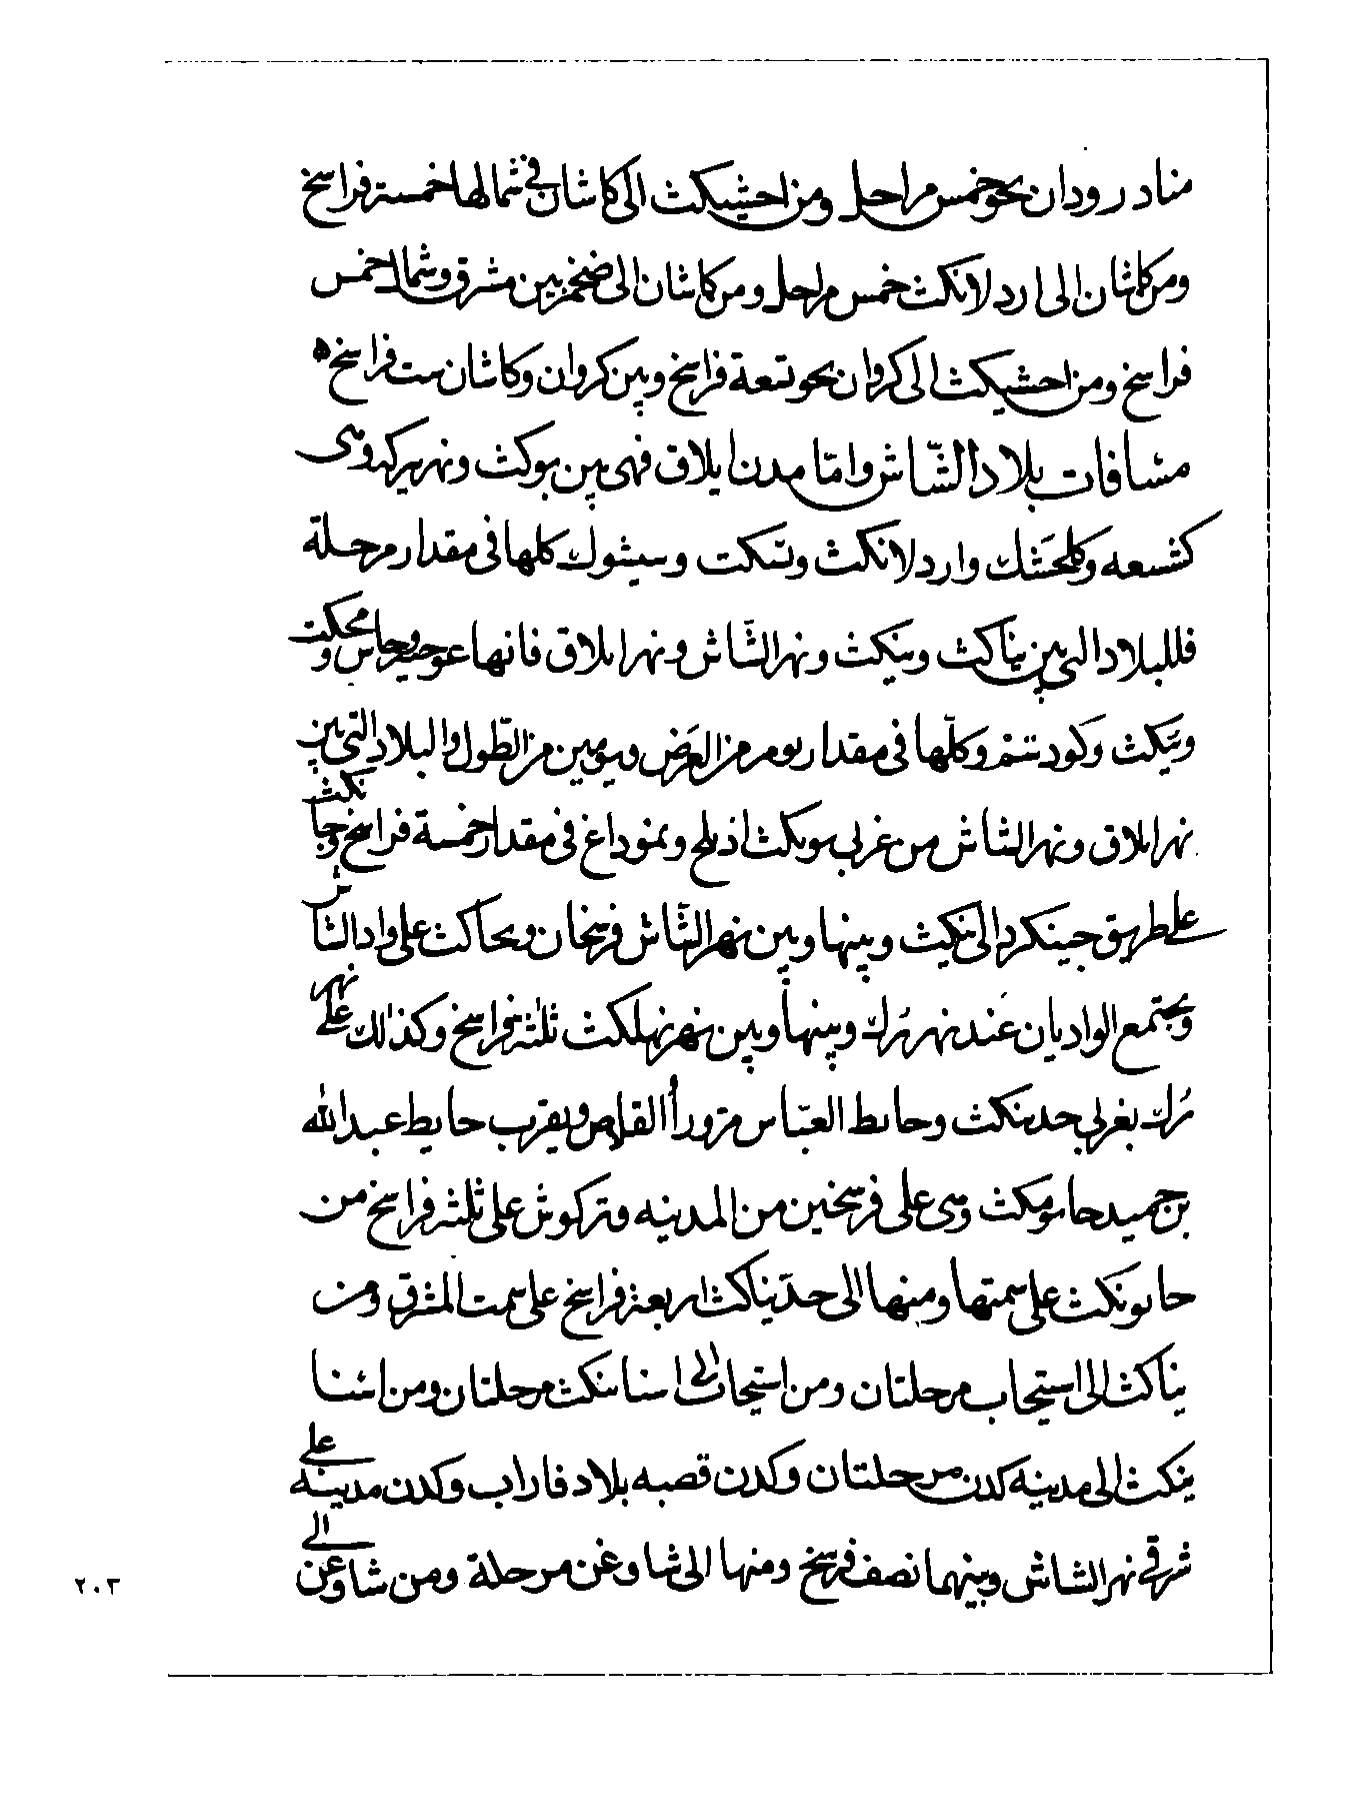 منادرودان نحو خمس مراحل ومن احشيكث الى كاشان فى شمالها خمسة فراسخ
ومن كاشان الى اردلانكث خمس مراحل ومن كاشان الى ضخم بين مشرق وشمال خمس
فراسخ ومن احشيكث الى كروان نحو تسعة فراسخ وبين كروان وكاشان ست فراسخ ه
مسافات بلاد الشّاش وامّا مدن ايلاق فهى بين بوكث ونهر
واردلانكث وبسكت وسيشوك كلها فى مقدار مرحلة
فللبلاد التى بين بناكث وبنيكث ونهر الشّاش ونهر ايلاق فانها
وكلّها فى مقدار يوم من العَرَض ويومين من الطّول والبلاد التى بين
نهر ايلاق ونهر الشاش من غربى اذيلح ونموداغ فى مقدار خمسة فراسخ وجيا
نكث
على طريق جينكرد الى بنكيث وبينها وبين نهر الشّاش فرسخان وجاكث على واد الشا
ش
ويجتمع الواديان عند نهر تُرك وبينها وبين نهر ثلثة فراسخ وكذلك على
نهر
تُرك بغربى وحايط العبّاس من وراأ القلاص ويقرب حايط عبد الله
بن حميد وهى على فرسخين من المدينه وتركوش على ثلثة فراسخ من
على سمتها ومنها الى اربعة فراسخ على سمت المشرق ومن
بناكث الى استيجاب مرحلتان ومن استيجاب الى اسبانيكث مرحلتان ومن اشبا
ينكث الى مدينه كدن مرحلتان وكدن قصبه بلاد فاراب وكدن مدينه على
شرقى نهر الشاش وبينهما نصف فرسخ ومنها الى شاوغن مرحلة ومن شاوغن الى
٢٠٣